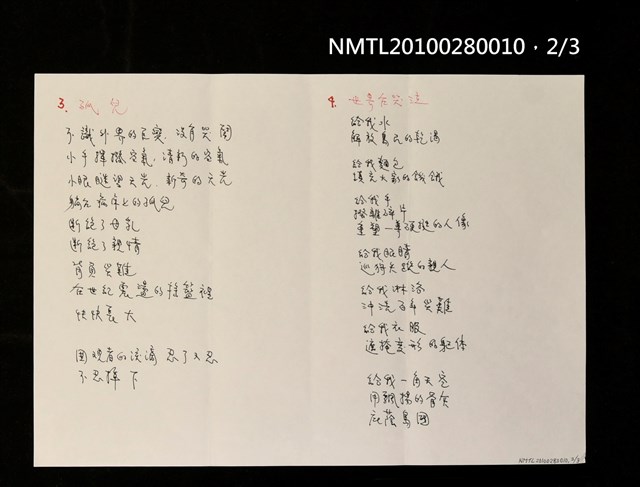 NMTL20100280010，2/3
3. 孤兒
不識外界的巨變，沒有哭鬧
小手揮撥空氣，清新的空氣
小眼瞄望天光，新奇的天光
躺在病床上的孤兒
斷絕了母乳
斷絕了親情
背負災難
在世紀震盪的搖籃裡
快快長大
圍觀者的淚滴 忍了又忍
不忍掉下
4. 世哥在哭泣
給我水
解放烏云的乾渴
給我麵包
填充大家的飢餓
給我手
撥離碎片
重塑一尊硬挺的人像
給我眼睛
巡狩失蹤的親人
給我淋浴
沖洗百年災難
給我衣服
遮掩變形的軀体
給我一角天空
用飄揚的骨灰
庇蔭島國
NMTL20100280010, 2/3